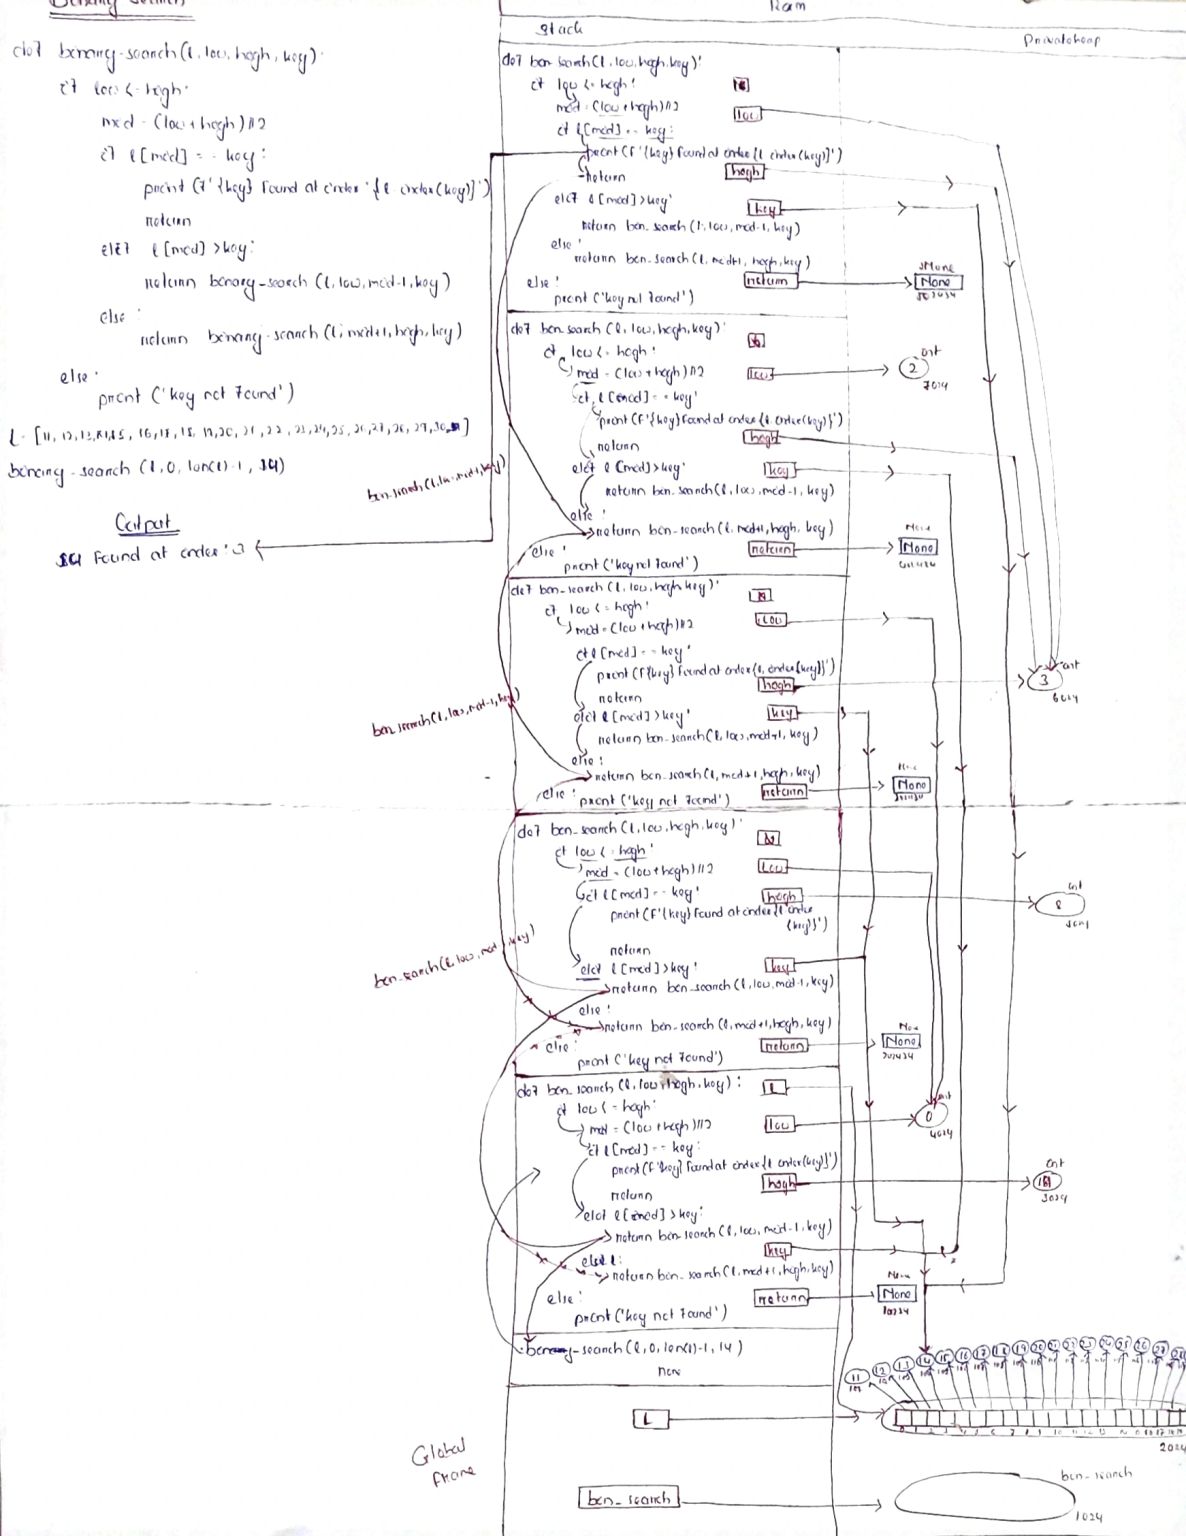 Binary Search
def binary-search(l, low, high, key):
if low <= high:
mid = (low + high)//2
if l[mid] == key:
print(f'{key} Found at index : {l.index(key)}')
return
elif l[mid] > key:
return binary-search(l, low, mid-1, key)
else:
return binary-search(l, mid+1, high, key)
else:
print('key not found')
binary-search(l, 0, len(l)-1, 14)
Output
14 Found at index : 3
Ram
Stack
Private heap
def bin_search(l, low, high, key):
if low <= high:
mid = (low + high)//2
if l[mid] == key:
print(f'{key} Found at index {l.index(key)}')
return
elif l[mid] > key:
return bin_search(l, low, mid-1, key)
else:
return bin_search(l, mid+1, high, key)
else:
print('key not found')
low
high
key
return
None
None
def bin_search(l, low, high, key):
if low <= high:
mid = (low + high)//2
if l[mid] == key:
print(f'{key} Found at index {l.index(key)}')
return
elif l[mid] > key:
return bin_search(l, low, mid-1, key)
else:
return bin_search(l, mid+1, high, key)
else:
print('key not found')
low
int
2
7024
high
key
return
None
None
bin_search(l, low, mid-1, key)
def bin_search(l, low, high, key):
if low <= high:
mid = (low + high)//2
if l[mid] == key:
print(f'{key} Found at index {l.index(key)}')
return
elif l[mid] > key:
return bin_search(l, low, mid+1, key)
else:
return bin_search(l, mid+1, high, key)
else:
print('key not found')
low
high
int
3
6024
key
return
None
None
bin_search(l, low, mid-1, key)
def bin_search(l, low, high, key):
if low <= high:
mid = (low + high)//2
if l[mid] == key:
print(f'{key} Found at index {l.index
(key)}')
return
elif l[mid] > key:
return bin_search(l, low, mid-1, key)
else:
return bin_search(l, mid+1, high, key)
else:
print('key not found')
low
high
int
8
key
return
None
None
def bin_search(l, low, high, key):
if low <= high:
mid = (low + high)//2
if l[mid] == key:
print(f'{key} Found at index {l.index(key)}')
return
elif l[mid] > key:
return bin_search(l, low, mid-1, key)
else:
return bin_search(l, mid+1, high, key)
else:
print('key not found')
l
low
int
0
4024
high
int
3024
key
return
None
None
binary-search(l, 0, len(l)-1, 14)
none
11 12 13 14 15 16 17 18 19 20 21 22 23 24 25 26 27 28
L
2024
Global
Frame
bin_search
bin_search
1024